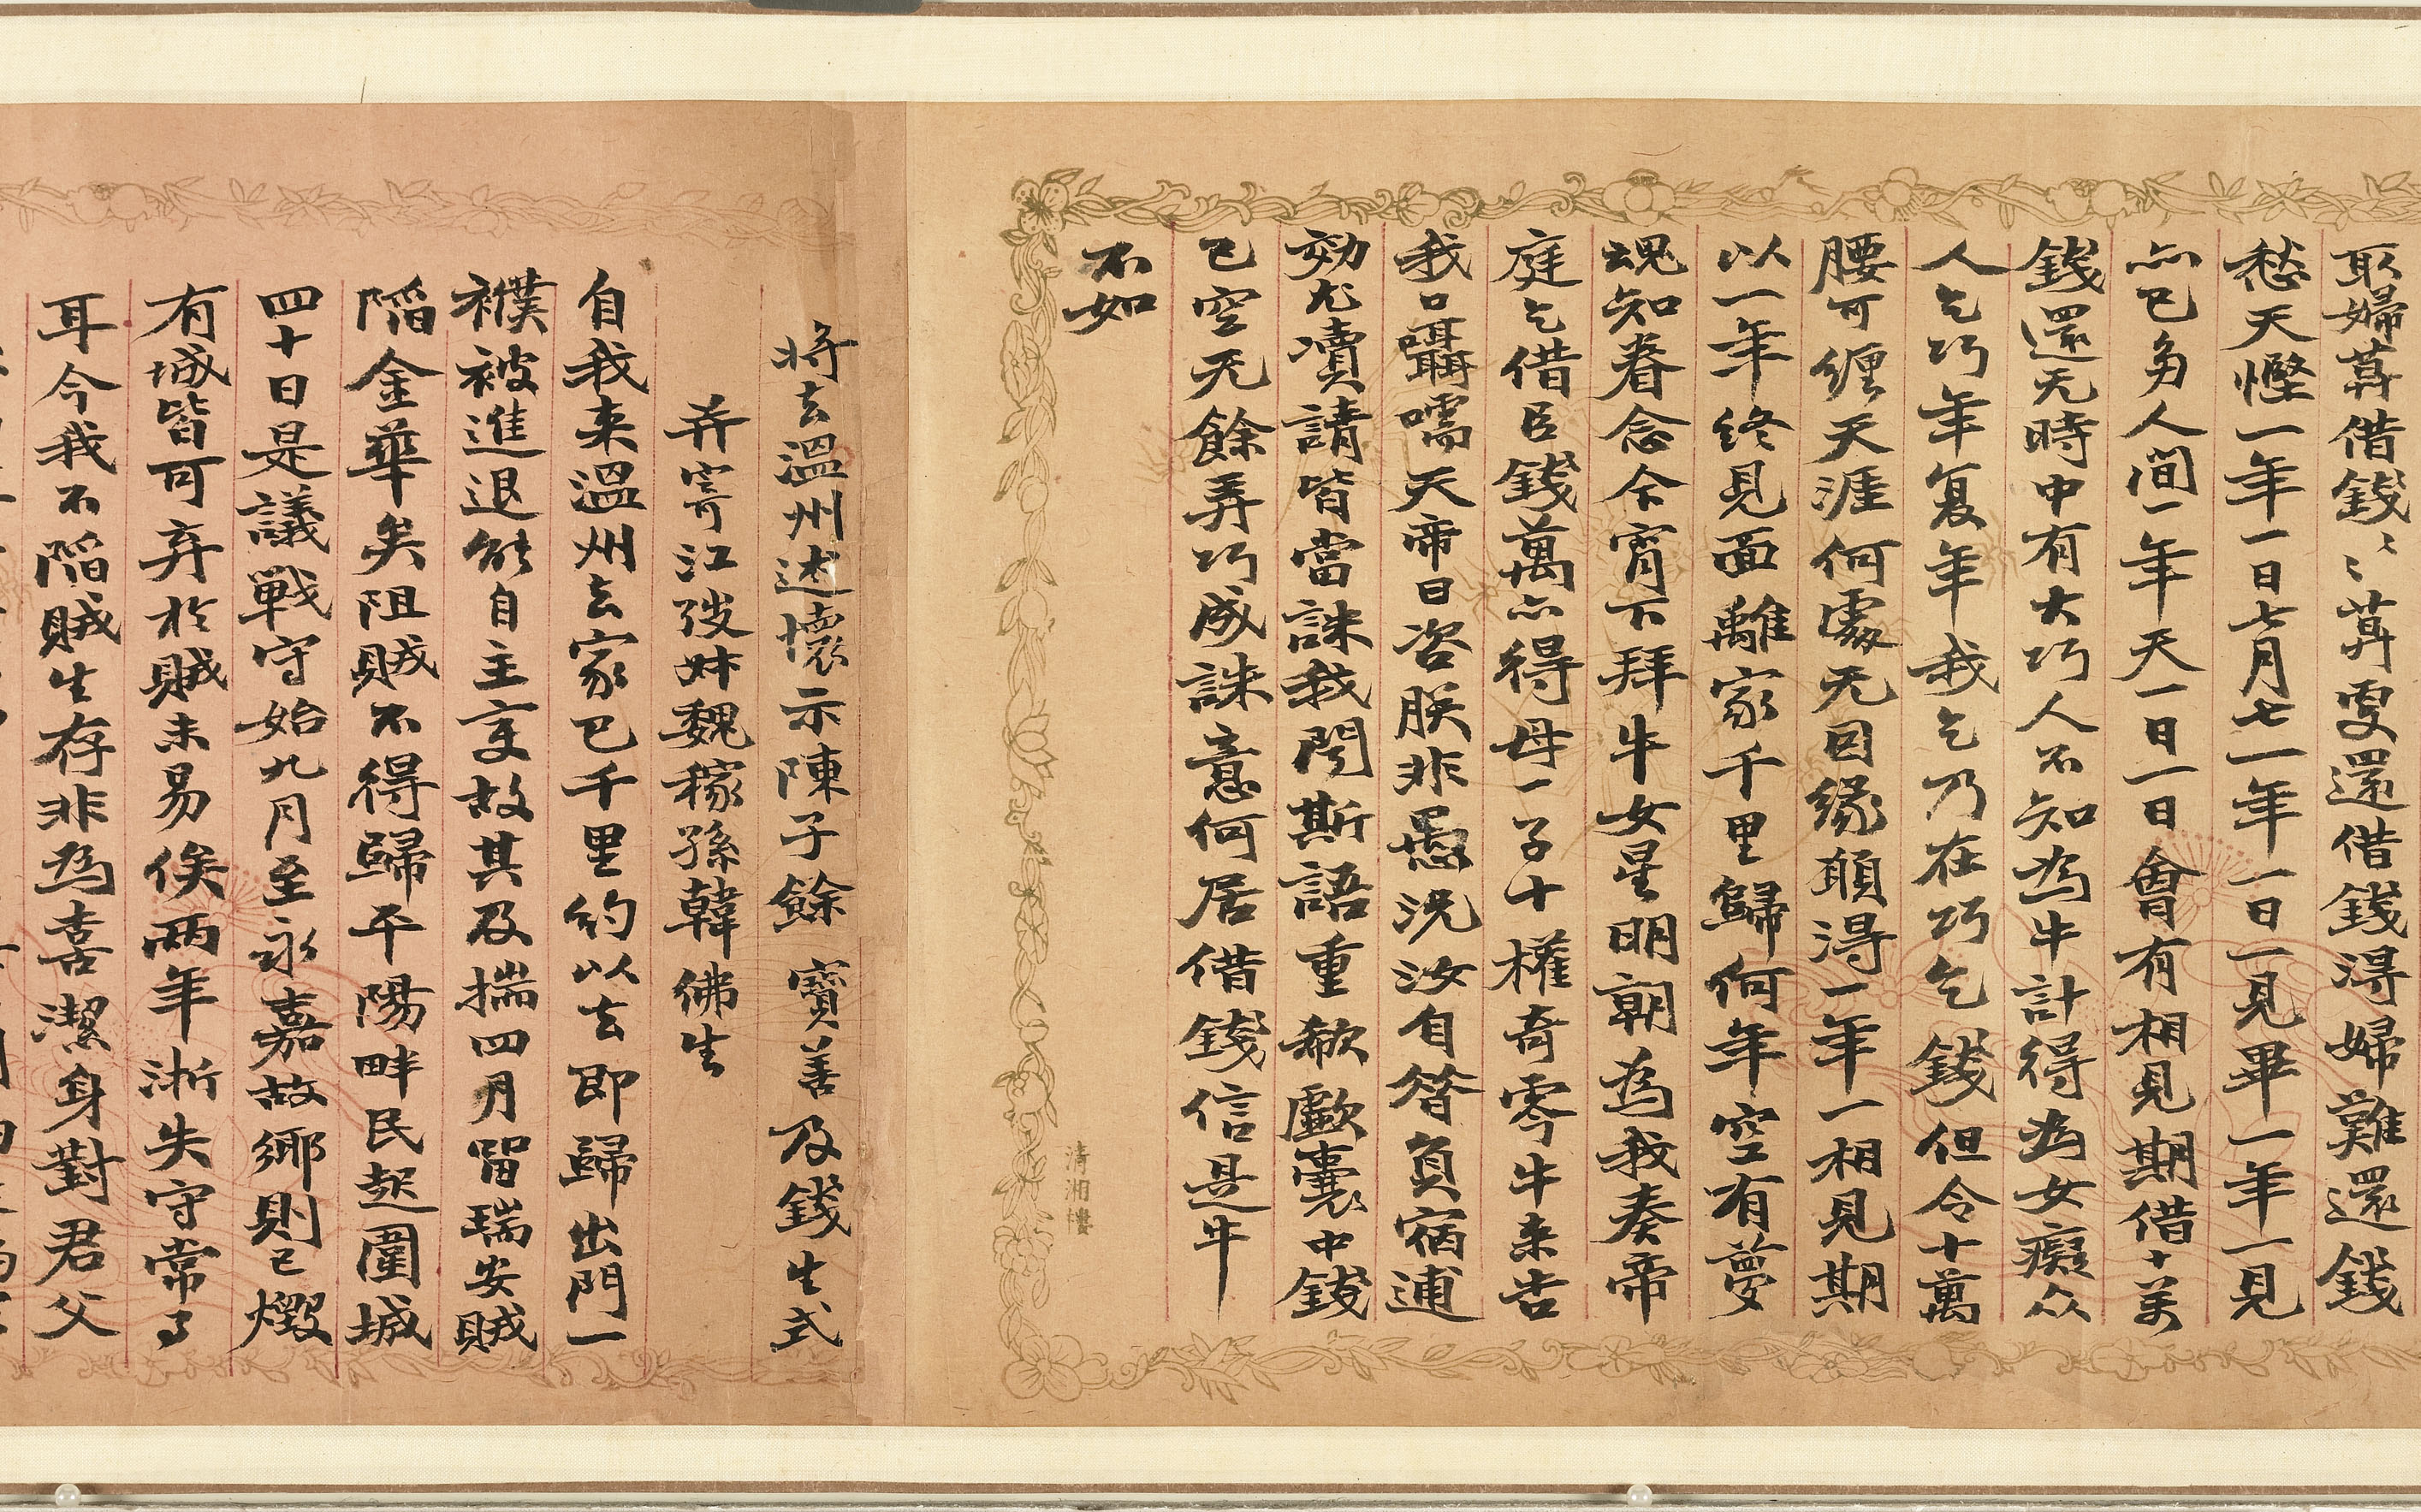 取婦葬借錢〻〻葬叟還借錢得婦難還錢
愁天慳一年一日七月七一年一日一見畢一年一見
亦已多人間一年天一日一日會有相見期借十萬
錢還无時中有大巧人不知為牛計得為女癡众
人乞巧年复年我乞乃在巧乞錢但令十萬
腰可纏天涯何處无因緣頋得一年一相見期
以一年終見面離家千里歸何年空有夢
魂知眷念今宵下拜牛女星明朝為我奏帝
庭乞借臣錢萬亦得母一子十權奇零牛来告
我口囁嚅天帝曰咨朕非愚況汝自督負宿逋
効尤瀆請皆當誅我聞斯語重欷歔囊中錢
已空无餘弄巧成誅意何居借錢信是牛
不如
清湘樓
将去溫州述懷示陳子餘 寶善及錢生式
并寄江弢妹魏稼孫韓佛生
自我来溫州去家已千里約以去即歸出門一
襆被進退能自主変故其及揣四月留瑞安賊
陷金華矣阻賊不得歸平陽畔民起圍城
四十日是議戰守始九月至永嘉故鄉則已燬
有城皆可弃於賊未易俟兩年浙失守常了
耳今我不陷賊生存非為喜潔身對君父